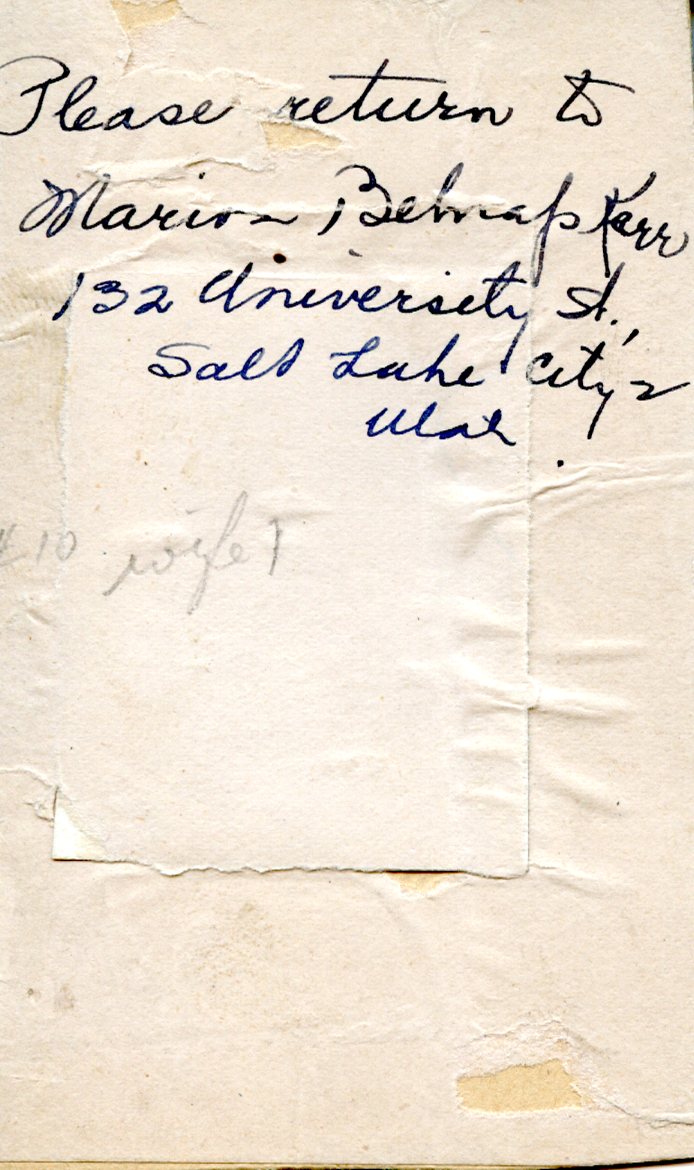 Please return to
Marion Belnap Kerr
132 University St.,
Salt Lake City 2
Utah.
#10 wife 1